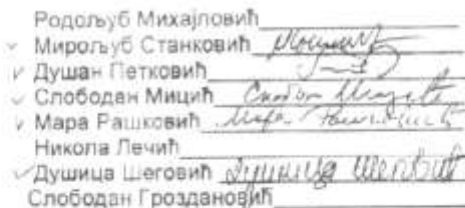 Родољуб Михајловић
Мирољуб Станковић
Душан Петковић
Слободан Мицић Слободан Мицић
Мара Рашковић Мара Рашковић
Никола Лечић
Душица Шеговић Душица Шеговић
Слободан Гроздановић